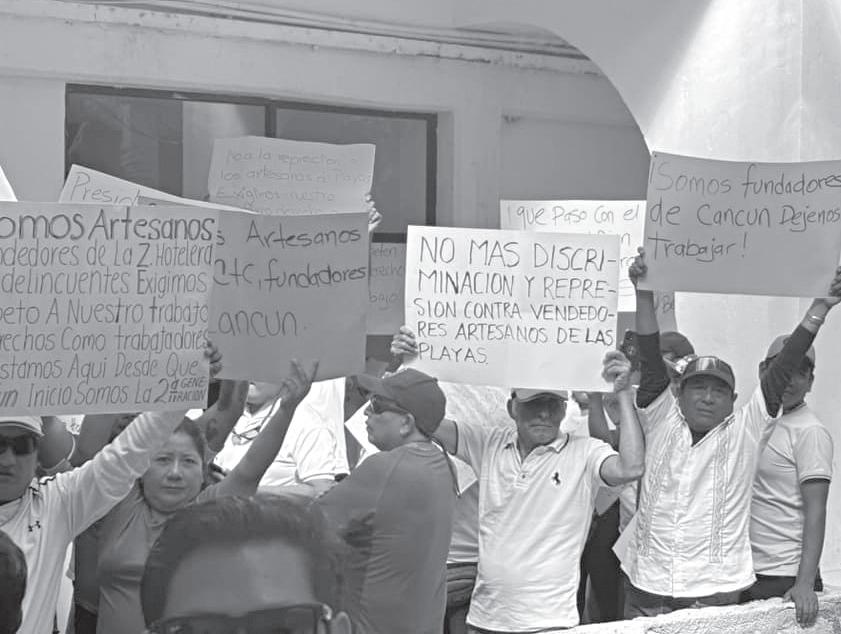 Somos Artesanos
ndedores de La Z. Hotelera
delincuentes Exigimos
peto A Nuestro trabajo
rechos Como trabajadores
stamos Aquí Desde Que
un Inicio Somos La 2ª GENE
RACIÓN
Presid
No a la represión a
los artesanos de Playas
Exigimos nuestro
s Artesanos
Ctc, fundadores
ancun.
NO MAS DISCRI-
MINACION Y REPRE-
SION CONTRA VENDEDO-
RES ARTESANOS DE LAS
PLAYAS.
¡QUE PASO Con el
¡Somos fundadores
de CanCun Dejenos
trabajar!